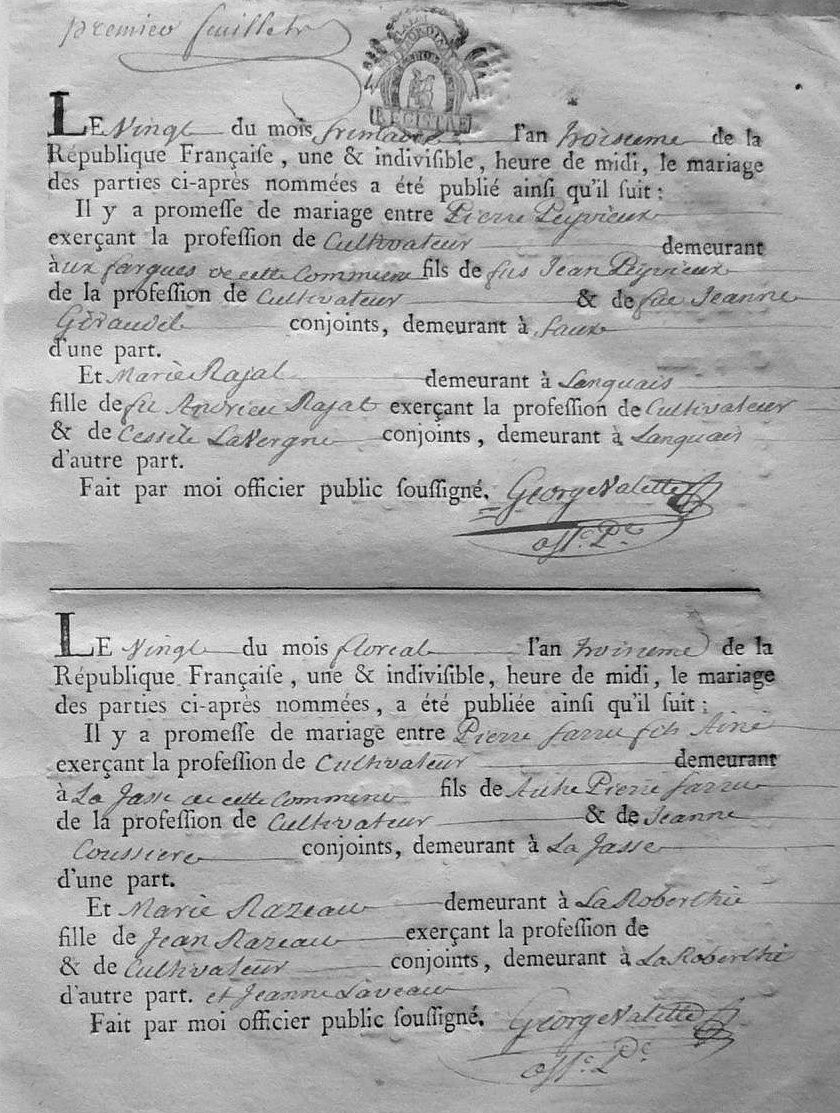 premier feuillet
REGITRE
LE Vingt du mois frimaire l'an troisieme de la
République Françaiſe, une & indiviſible, heure de midi, le mariage
des parties ci-après nommées a été publié ainſi qu'il ſuit :
Il y a promeſſe de mariage entre Pierre Peyrieux
exerçant la profeſſion de Cultivateur demeurant
àux fargues de cette Commune fils de fus Jean Peyrieux
de la profeſſion de Cultivateur & de fue Jeanne
Géraudel conjoints, demeurant à faux
d'une part.
Et Marie Rajat demeurant à Lanquais
fille de fu Andrieu Rajat exerçant la profeſſion de Cultivateur
& de Cessile LaVergne conjoints, demeurant à Lanquais
d'autre part.
Fait par moi officier public ſouſſigné. George Valette
off.c P.c
LE Vingt du mois floreal l'an troisieme de la
République Françaiſe, une & indiviſible, heure de midi, le mariage
des parties ci-après nommées, a été publiée ainſi qu'il ſuit :
Il y a promeſſe de mariage entre Pierre farru fils Ainé
exerçant la profeſſion de Cultivateur demeurant
à La Jasse de cette Commune fils de Autre Pierre farru
de la profeſſion de Cultivateur & de Jeanne
Coussiere conjoints, demeurant à La Jasse
d'une part.
Et Marie Razeau demeurant à La Roberthie
fille de Jean Razeau exerçant la profeſſion de
& de Cultivateur conjoints, demeurant à La Roberthie
d'autre part. et Jeanne Laveau
Fait par moi officier public ſouſſigné. George Valette
off.c P.c